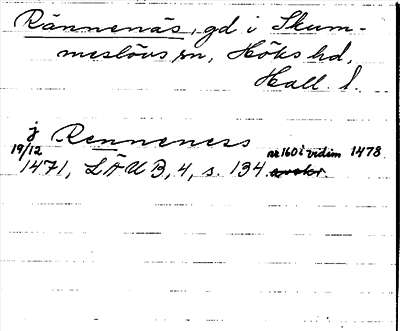 Rännenäs, gd i Skum-
meslövs sn, Höks hd,
Hall. l.
j Renneness
19/12 1471, LÄUB, 4, s. 134 nr 160 i vidim 1478